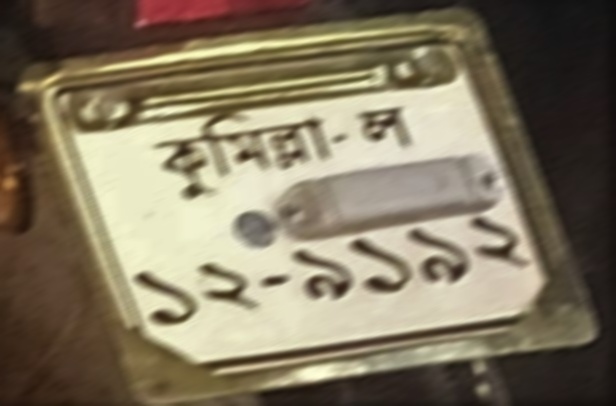 কুমিল্লা-ল
১২-৯১৯২